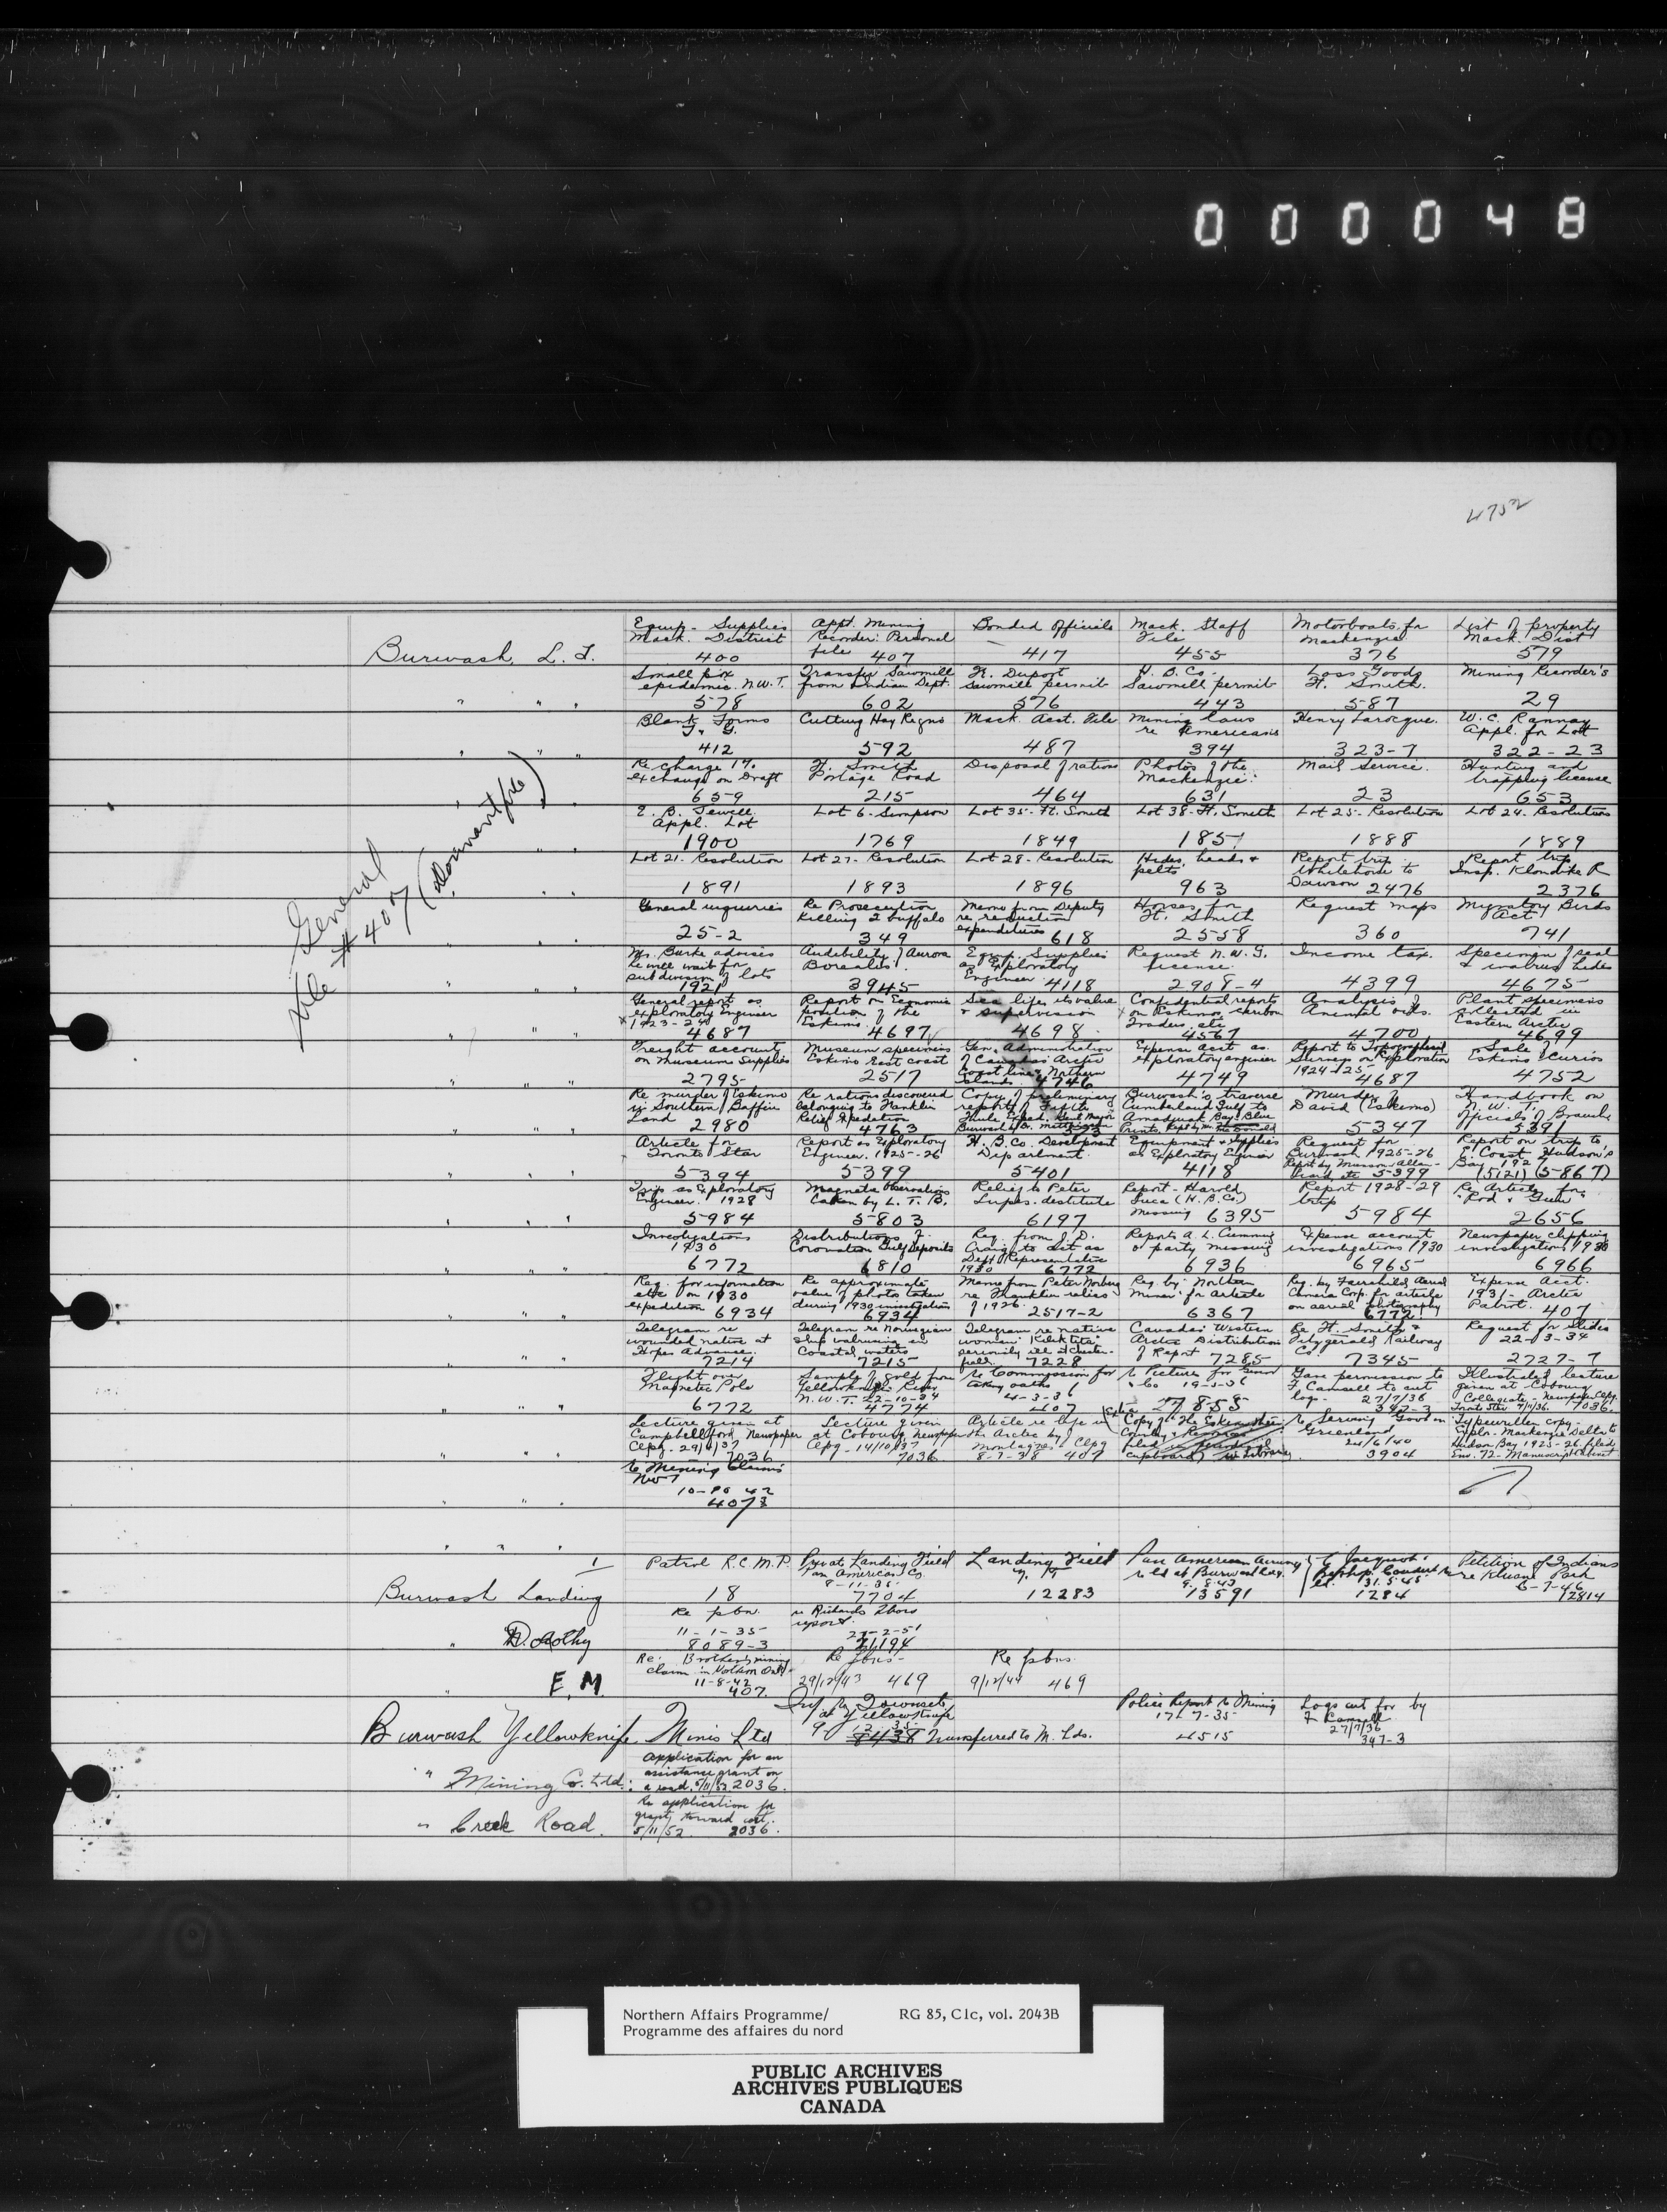 000048
4752
General
file #407 (Dormant file)
Burwash, L. T.
Equip - Supplies
Mack. District
400
Appt. Mining
Recorder: Personel
file 407
Bonded Officials
417
Mack. Staff
File
455
Motorboats for
Mackenzie
376
List of property
Mack. Dist
579
" " "
Small pox
epidemic. N.W.T.
578
Transfer Sawmill
from Indian Dept.
602
Ft. Duport
Sawmill permit
576
H. B. Co.
Sawmill permit
443
Loss Goods
Ft. Smith.
587
Mining Recorder's
29
" " "
Blank Forms
412
Cutting Hay Regns
592
Mack. Acct. File
487
Mining laws
re Americans
394
Henry Larocque.
323-7
W. C. Rannay
Appl. for Lot
322-23
" "
Re charge 1%
exchange on Draft
659
Ft. Smith
Portage Road
215
Disposal of rations
464
Photos of the
Mackenzie.
631
Mail Service.
23
Hunting and
trapping license
653
" "
E. B. Sewell
Appl. Lot
1900
Lot 6 - Simpson
1769
Lot 35 - Ft. Smith
1849
Lot 38 - Ft. Smith
1857
Lot 25 - Resolution
1888
Lot 24. Resolution
1889
" "
Lot 21 - Resolution
1891
Lot 27 - Resolution
1893
Lot 28 - Resolution
1896
Hides, heads &
pelts
963
Report trip
Whitehorse to
Dawson 2476
Report trip
Insp. Klondike R
2376
" "
General inquiries
25-2
Re Prosecution
killing 2 buffalo
349
Memo from Deputy
re reduction
expenditures 618
Horses for
Ft. Smith
2558
Request maps
360
Migratory Birds
Act
741
" "
Mr. Burke advises
he will wait for
subdivision of lots
1921
Audibility of Aurora
Borealis.
3945
Equip. Supplies
as Exploratory
Engineer 4118
Request N.W.G.
license.
2908-4
Income tax.
4399
Specimen of seal
& walrus hides
4675
" " "
General report as
exploratory Engineer
1923-24
4687
Report on Economic
position of the
Eskimo. 4697
Sea life, its value
& supervision
4698
Confidential reports
on Eskimo, caribou
Traders, etc
4567
Analysis of
Animal oils.
4700
Plant specimens
collected in
Eastern Arctic
4699
" " "
Freight account
on Museum Supplies
2795
Museum specimens
Eskimo East coast
2517
Gen. Administration
of Canada's Arctic
Coast line & Northern
Islands. 4746
Expense acct as
exploratory engineer
4749
Report to Topographical
Surveys on Exploration
1924-25
4687
Sale of
Eskimo Curios
4752
" " "
Re murder of Eskimo
in Southern Baffin
Land 2980
Re rations discovered
belonging to Franklin
Relief Expedition
4763
Copy of preliminary
report of Fifth
Thule Exped.
Burwash's traverse
Cumberland Gulf to
Amadjuak Bay. Blue
Prints.
Murder of
David (Eskimo)
5347
Handbook on
N. W. T.
Officials of Branch
5391
" " "
Article for
Toronto Star
5394
Report as Exploratory
Engineer. 1925-26
5399
H. B. Co. Development
Department.
5401
Equipment & Supplies
as Exploratory Engineer
4118
Request for
Burwash 1925-26
5399
Report on trip to
E. Coast Hudson's
Bay 192
(5121) (5867)
" " "
Trip as Exploratory
Engineer. 1928
5984
Magnetic Observations
taken by L. T. B.
5803
Relief to Peter
Lupes. destitute
6197
Report - Harold
Luca (H. B. Co.)
missing 6395
Report 1928-29
trip
5984
Re Article for
"Rod & Gun"
2656
" " "
Investigations
1930
6772
Distribution of
Coronation Gulf Deposits
6810
Req. from J. D.
Craig to act as
Dept Representative
1930 6772
Report A. L. Cumming
& party missing
6936
Expense account
investigations 1930
6965
Newspaper clipping
investigations 1930
6966
" "
Req. for information
etc on 1930
expedition 6934
Re approximate
value of photos taken
during 1930 investigation
6934
Memo from Peter Norberg
re Franklin relics
of 1926. 2517-2
Req. by Northern
Miner for article
6367
Req. by Fairchild Aerial
Camera Corp. for article
on aerial photography
6772
Expense Acct.
1931 - Arctic
Patrol. 407
" " "
Telegram re
wounded native at
Hopes Advance.
7214
Telegram re Norwegian
ship walrusing in
Coastal waters
7215
Telegram re native
woman
seriously ill at Chester-
field. 7228
Canada's Western
Arctic Distribution
of Report 7285
Re Ft. Smith &
Fitzgerald Railway
Co. 7345
Request for Slides
22-3-34
2727-7
" " "
Flight over
Magnetic Pole
6772
Sample of gold from
Yellowknife River
N.W.T. 22-10-34
4774
re Commission for
taking oaths
4-3-36
407
re Picture for
& Co 19-3-36
27855
Gave permission to
F. Camsell to cut
logs - 27/7/36
347-3
Illustrated lecture
given at Cobourg
Collegiate - Newspaper Clpg.
Toronto Star 7/11/36. 7036
" " "
Lecture given at
Campbellford, Newspaper
Clpg. - 29/1/37
7036
Lecture given
at Cobourg, Newspaper
Clpg - 14/10/37
7036.
Article re life in
the Arctic by
Montagnes - Clpg
8-7-38 407
Copy of "The Eskimo, their
Country & Resources"
filed in
cupboard) in Library
re Serving Good in
Greenland
24/6/40
3904
Typewritten copy -
Expln. Mackenzie Delta to
Hudson Bay 1925-26 filed
Env. 72 - Manuscript Cabinet
" " "
re Mining Claims
NWT
10-10 42
407
" " "
Burwash Landing
Patrol R.C.M.P.
18
Private Landing Field
Pan American Co.
8-11-35
7704
Landing Field
Y. T.
12283
Pan American Airways
re ld at Burwash Ldg.
9.8.43
13591
E Jacquot
31.5.45
1284
Petition of Indians
re Kluane Park
6-7-46
12814
" D. Aothy
Re pbn.
11-1-35
8089-3
re Richards Shors
report.
27-2-51
21194
" E. M.
Re: Brothers mining
claim in Northern Ont.
11-8-42
407.
Re pbns -
29/12/43 469
Re pbns.
9/12/44 469
Burwash Yellowknife Mines Ltd
Inf. re Townsite
at Yellowknife
9 12 35
8438 Transferred to M. Lds.
Police Report re Mining
17-7-35
4515
Logs cut for by
F. Camsell
27/7/36
347-3
" Mining Co. Ltd.
Application for an
assistance grant on
a road. 5/11/52 2036.
" Creek Road.
Re application for
grant toward cost.
5/11/52. 2036.
Northern Affairs Programme/ RG 85, C1c, vol. 2043B
Programme des affaires du nord
PUBLIC ARCHIVES
ARCHIVES PUBLIQUES
CANADA